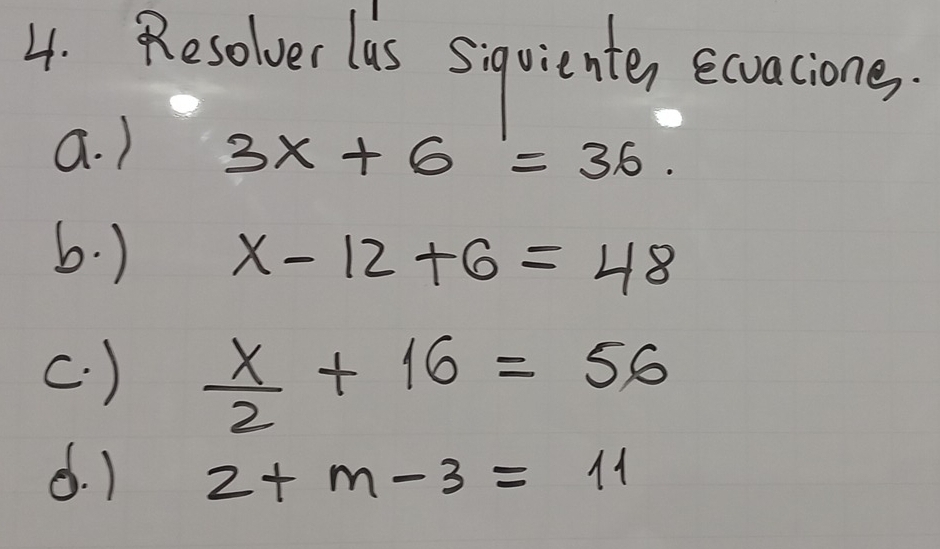 4. Resolver las siguientes Ecuaciones.
a.) 3x + 6 = 36.
b.) x - 12 + 6 = 48
c.) x/2 + 16 = 56
d.) 2 + m - 3 = 11